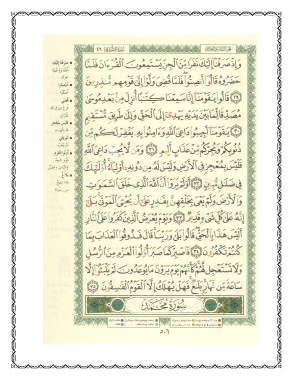 وَإِذْ صَرَفْنَا إِلَيْكَ نَفَرًا مِّنَ الْجِنِّ يَسْتَمِعُونَ الْقُرْءَانَ فَلَمَّا
حَضَرُوهُ قَالُوا أَنصِتُوا فَلَمَّا قُضِيَ وَلَّوْا إِلَى قَوْمِهِم مُّنذِرِينَ
٢٩ قَالُوا يَا قَوْمَنَا إِنَّا سَمِعْنَا كِتَابًا أُنزِلَ مِن بَعْدِ مُوسَى
مُصَدِّقًا لِّمَا بَيْنَ يَدَيْهِ يَهْدِي إِلَى الْحَقِّ وَإِلَى طَرِيقٍ مُّسْتَقِيمٍ
٣٠ يَا قَوْمَنَا أَجِيبُوا دَاعِيَ اللَّهِ وَءَامِنُوا بِهِ يَغْفِرْ لَكُم مِّن
ذُنُوبِكُمْ وَيُجِرْكُم مِّنْ عَذَابٍ أَلِيمٍ ٣١ وَمَن لَّا يُجِبْ دَاعِيَ اللَّهِ
فَلَيْسَ بِمُعْجِزٍ فِي الْأَرْضِ وَلَيْسَ لَهُ مِن دُونِهِ أَوْلِيَاءُ أُولَٰئِكَ
فِي ضَلَالٍ مُّبِينٍ ٣٢ أَوَلَمْ يَرَوْا أَنَّ اللَّهَ الَّذِي خَلَقَ السَّمَاوَاتِ
وَالْأَرْضَ وَلَمْ يَعْيَ بِخَلْقِهِنَّ بِقَادِرٍ عَلَى أَن يُحْيِيَ الْمَوْتَى بَلَى
إِنَّهُ عَلَى كُلِّ شَيْءٍ قَدِيرٌ ٣٣ وَيَوْمَ يُعْرَضُ الَّذِينَ كَفَرُوا عَلَى النَّارِ
أَلَيْسَ هَٰذَا بِالْحَقِّ قَالُوا بَلَى وَرَبِّنَا قَالَ فَذُوقُوا الْعَذَابَ بِمَا
كُنتُمْ تَكْفُرُونَ ٣٤ فَاصْبِرْ كَمَا صَبَرَ أُولُوا الْعَزْمِ مِنَ الرُّسُلِ
وَلَا تَسْتَعْجِل لَّهُمْ كَأَنَّهُمْ يَوْمَ يَرَوْنَ مَا يُوعَدُونَ لَمْ يَلْبَثُوا إِلَّا
سَاعَةً مِّن نَّهَارٍ بَلَاغٌ فَهَلْ يُهْلَكُ إِلَّا الْقَوْمُ الْفَاسِقُونَ ٣٥
سُورَةُ مُحَمَّد
٥٠٦